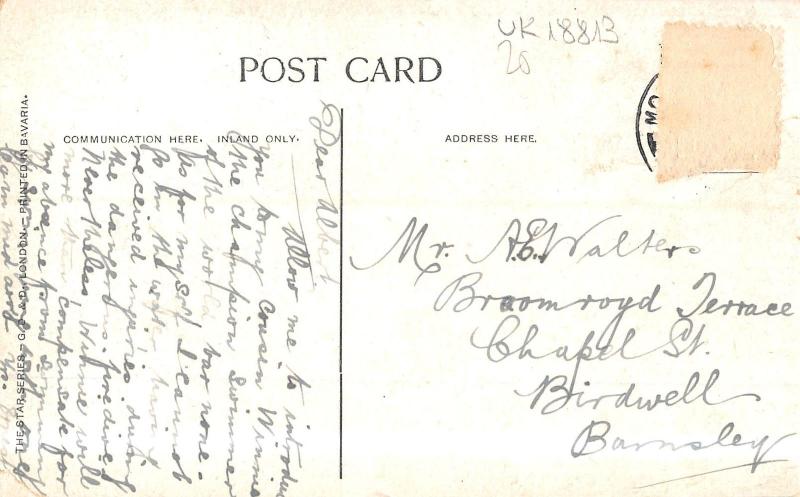 UK 18813
20
POST CARD
COMMUNICATION HERE. INLAND ONLY.
ADDRESS HERE.
MO
Dear Albert
Allow me to introduce
you to my cousin Winnie
the champion swimmer
of the world bar none.
As for myself I cannot
go in the water having
received injuries during
the dangerous fire dive
Nevertheless Winnie will
more than compensate for
my absence from
Mr. A.E. Walters
Broomroyd Terrace
Chapel St.
Birdwell
Barnsley
THE STAR SERIES - G. D. & D., LONDON. - PRINTED IN BAVARIA.